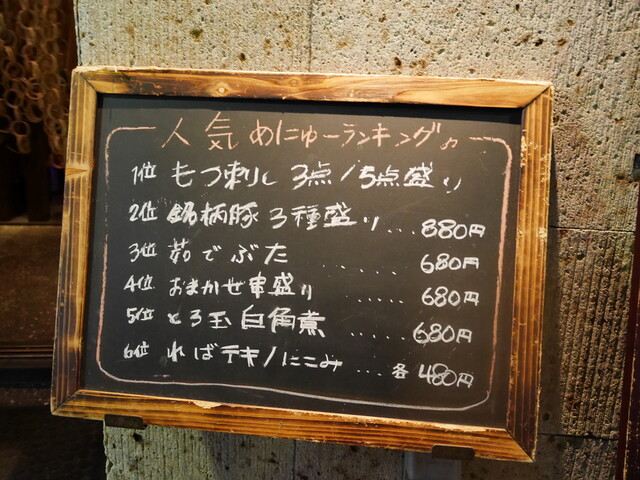 人気めにゅーランキング♪
1位 もつ刺し 3点/5点盛り
2位 銘柄豚3種盛り...880円
3位 茹でぶた .....680円
4位 おまかせ串盛り .....680円
5位 とろ玉白角煮 .....680円
6位 ればテキ/にこみ....各480円